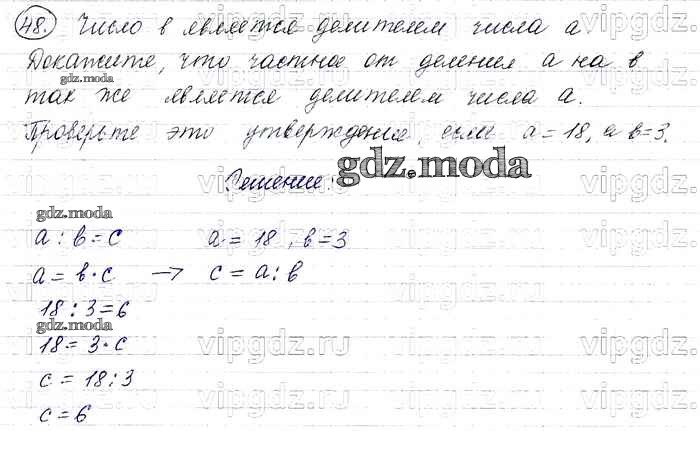 48. Число в является делителем числа а.
Докажите, что частное от деления а на в
gdz.moda
так же является делителем числа а.
Проверьте это утверждения, если а = 18, а в=3.
gdz.moda
Решение:
gdz.moda
а : в = с а = 18, в=3
а = в · с → с = а : в
18 : 3 = 6
gdz.moda
18 = 3 · с
с = 18 : 3
с = 6
vipgdz.ru